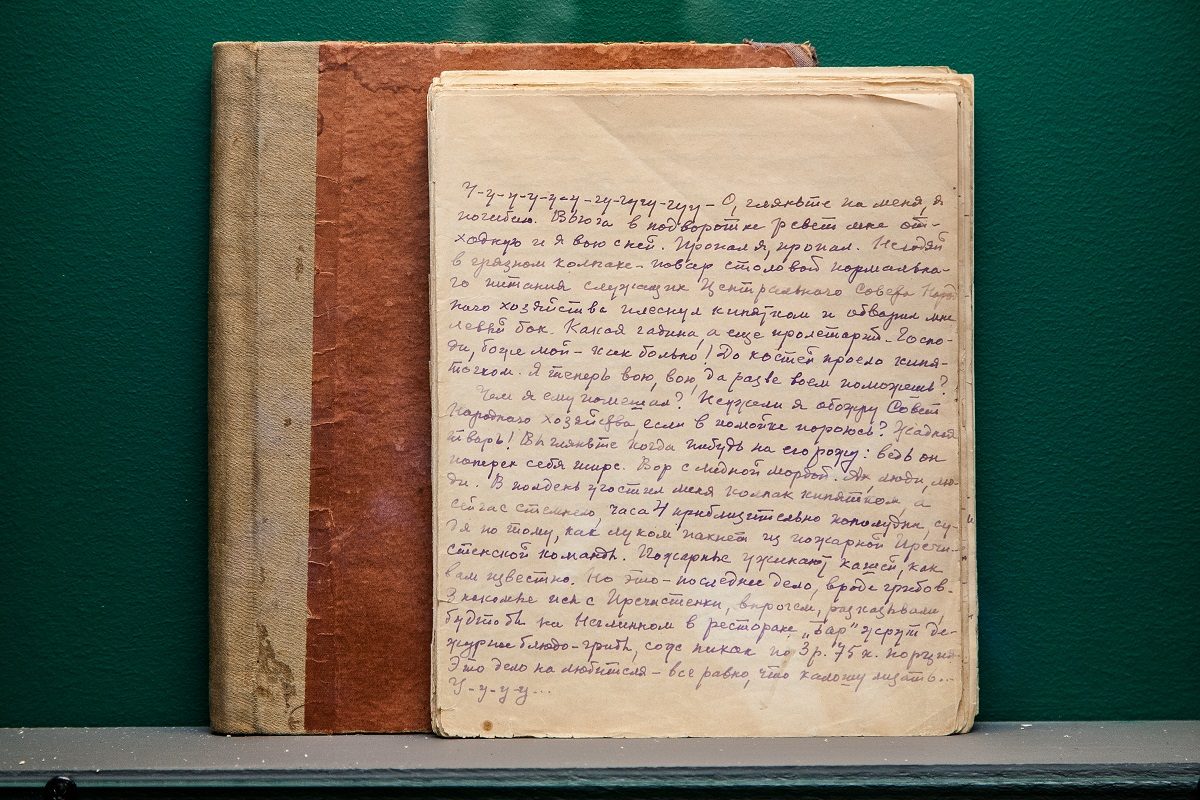 У-у-у-у-у-у-гу-гугу-гуу- О, гляньте на меня, я
погибаю. Вьюга в подворотне ревет мне от-
ходную и я вою с ней. Пропал я, пропал. Негодяй
в грязном колпаке - повар столовой нормально-
го питания служащих Центрального Совета Народ
ного хозяйства плеснул кипятком и обварил мне
левый бок. Какая гадина, а еще пролетарий. Госпо-
ди, боже мой - как больно! До костей проело кипя-
точком. Я теперь вою, вою, да разве воем поможешь?
Чем я ему помешал? Неужели я обожру Совет
Народного Хозяйства, если в помойке пороюсь? Жадная
тварь! Вы гляньте когда нибудь на его рожу: ведь он
поперек себя шире. Вор с медной мордой. Ах, люди, лю-
ди. В полдень угостил меня колпак кипятком, а
сейчас стемнело, часа 4 приблизительно пополудни, су-
дя по тому, как луком пахнет из пожарной Пречи-
стенской команды. Пожарные ужинают кашей, как
вам известно. Но это - последнее дело, вроде грибов.
Знакомые псы с Пречистенки, впрочем, рассказывали,
будто бы на Неглинном в ресторане „Бар" жрут де-
журное блюдо - грибы, соус пикан по 3 р. 75 к. порция.
Это дело на любителя - все равно, что калошу лизать...
У-у-у-у...